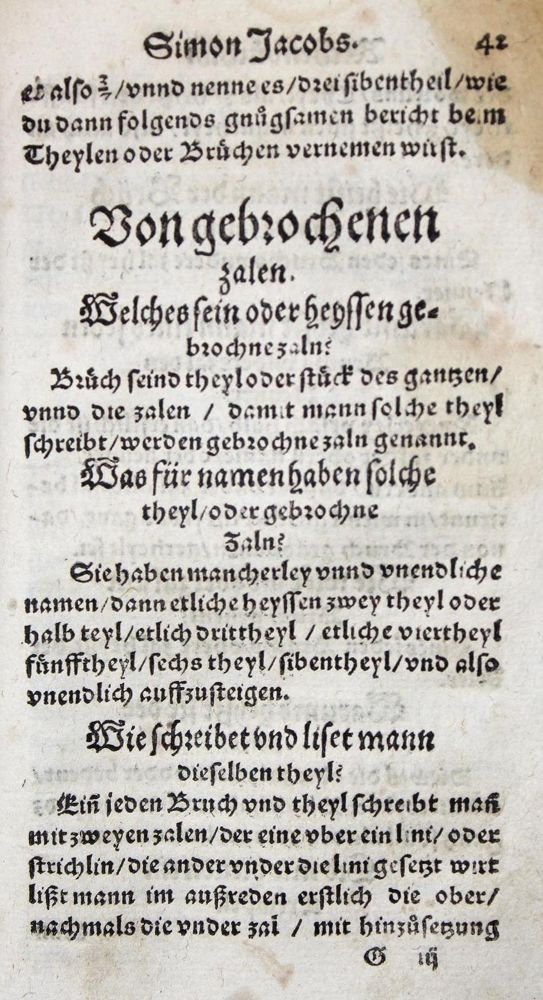 Simon Jacobs. 42
es also 3/7/vnnd nenne es/drei sibentheil/wie
du dann folgends gnůgsamen bericht beim
Theylen oder Brüchen vernemen wirst.
Von gebrochenen
zalen.
Welches sein oder heyssen ge-
brochne zaln?
Brüch seind theyl oder stück des gantzen/
vnnd die zalen / damit mann solche theyl
schreibt/werden gebrochne zaln genannt.
Was für namen haben solche
theyl/oder gebrochne
Zaln?
Sie haben mancherley vnnd vnendliche
namen/dann etliche heyssen zwey theyl oder
halb teyl/etlich drittheyl / etliche viertheyl
fünfftheyl/sechs theyl/sibentheyl/vnd also
vnendlich auffzusteigen.
Wie schreibet vnd liset mann
dieselben theyl?
Ein̄ jeden Bruch vnd theyl schreibt man̄
mit zweyen zalen/der eine vber ein lini/ oder
strichlin/die ander vnder die lini gesetzt wirt
lißt mann im außreden erstlich die ober/
nachmals die vnder zal / mit hinzůsetzung
G iij